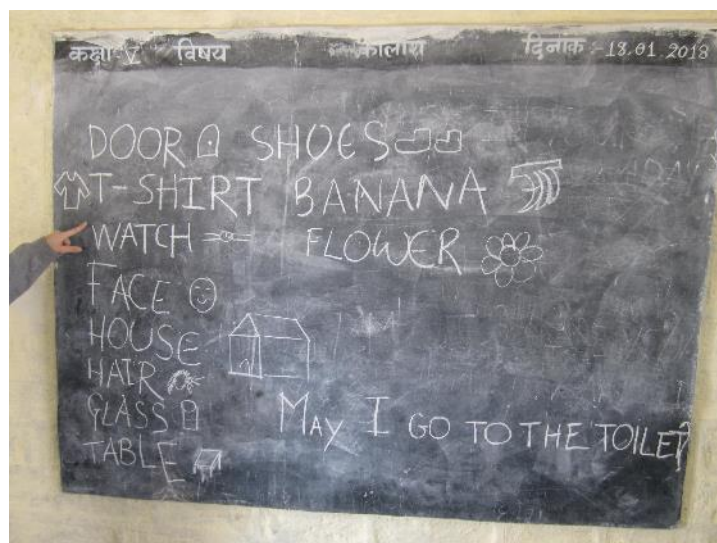 कक्षा-V विषय कालांश दिनांक :-18.01.2018
DOOR SHOES
T-SHIRT BANANA
WATCH FLOWER
FACE
HOUSE
HAIR
GLASS
TABLE
MAY I GO TO THE TOILET?